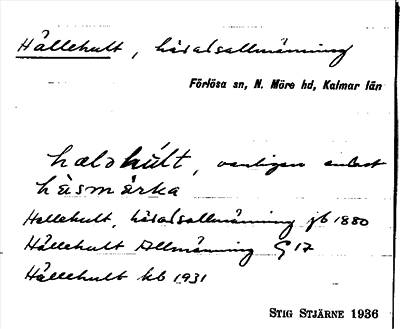 Hällehult, häradsallmänning
Förlösa sn, N. Möre hd, Kalmar län
halohult, vanligen enbart
häsmärka
Hellehult, häradsallmänning jb 1880
Hällehult Allmänning G 17
Hällehult kb 1931
STIG STJÄRNE 1936